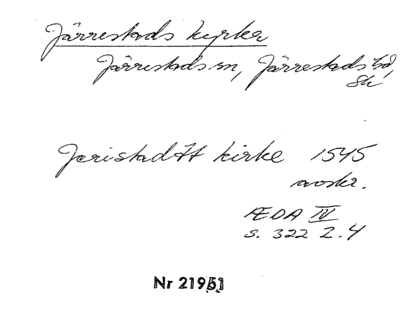 Järrestads kyrka
Järrestads sn, Järrestads hd,
Sk
Jaristadtt kirke 1545
avskr.
ÆDA IV
s. 322 Z. 4
Nr 21951